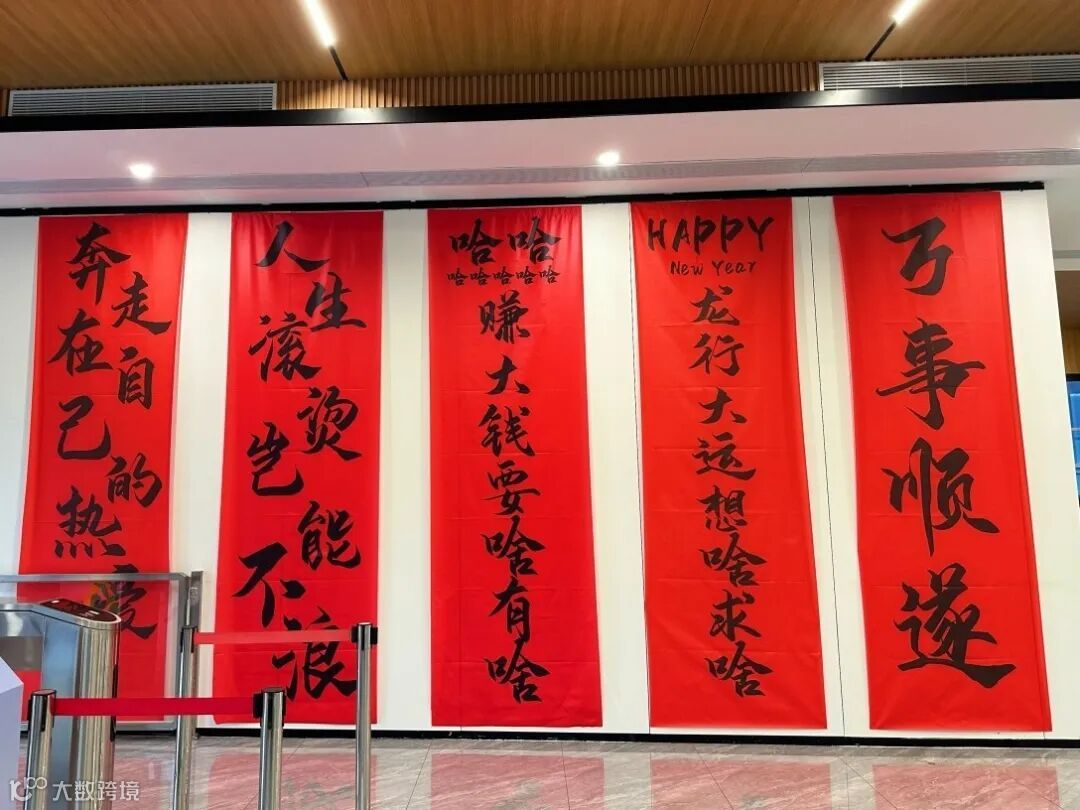 奔走在自己的热爱
人生滚烫岂能不浪
哈哈
哈哈哈哈哈
赚大钱要啥有啥
HAPPY
New Year
龙行大运想啥求啥
万事顺遂
大数跨境